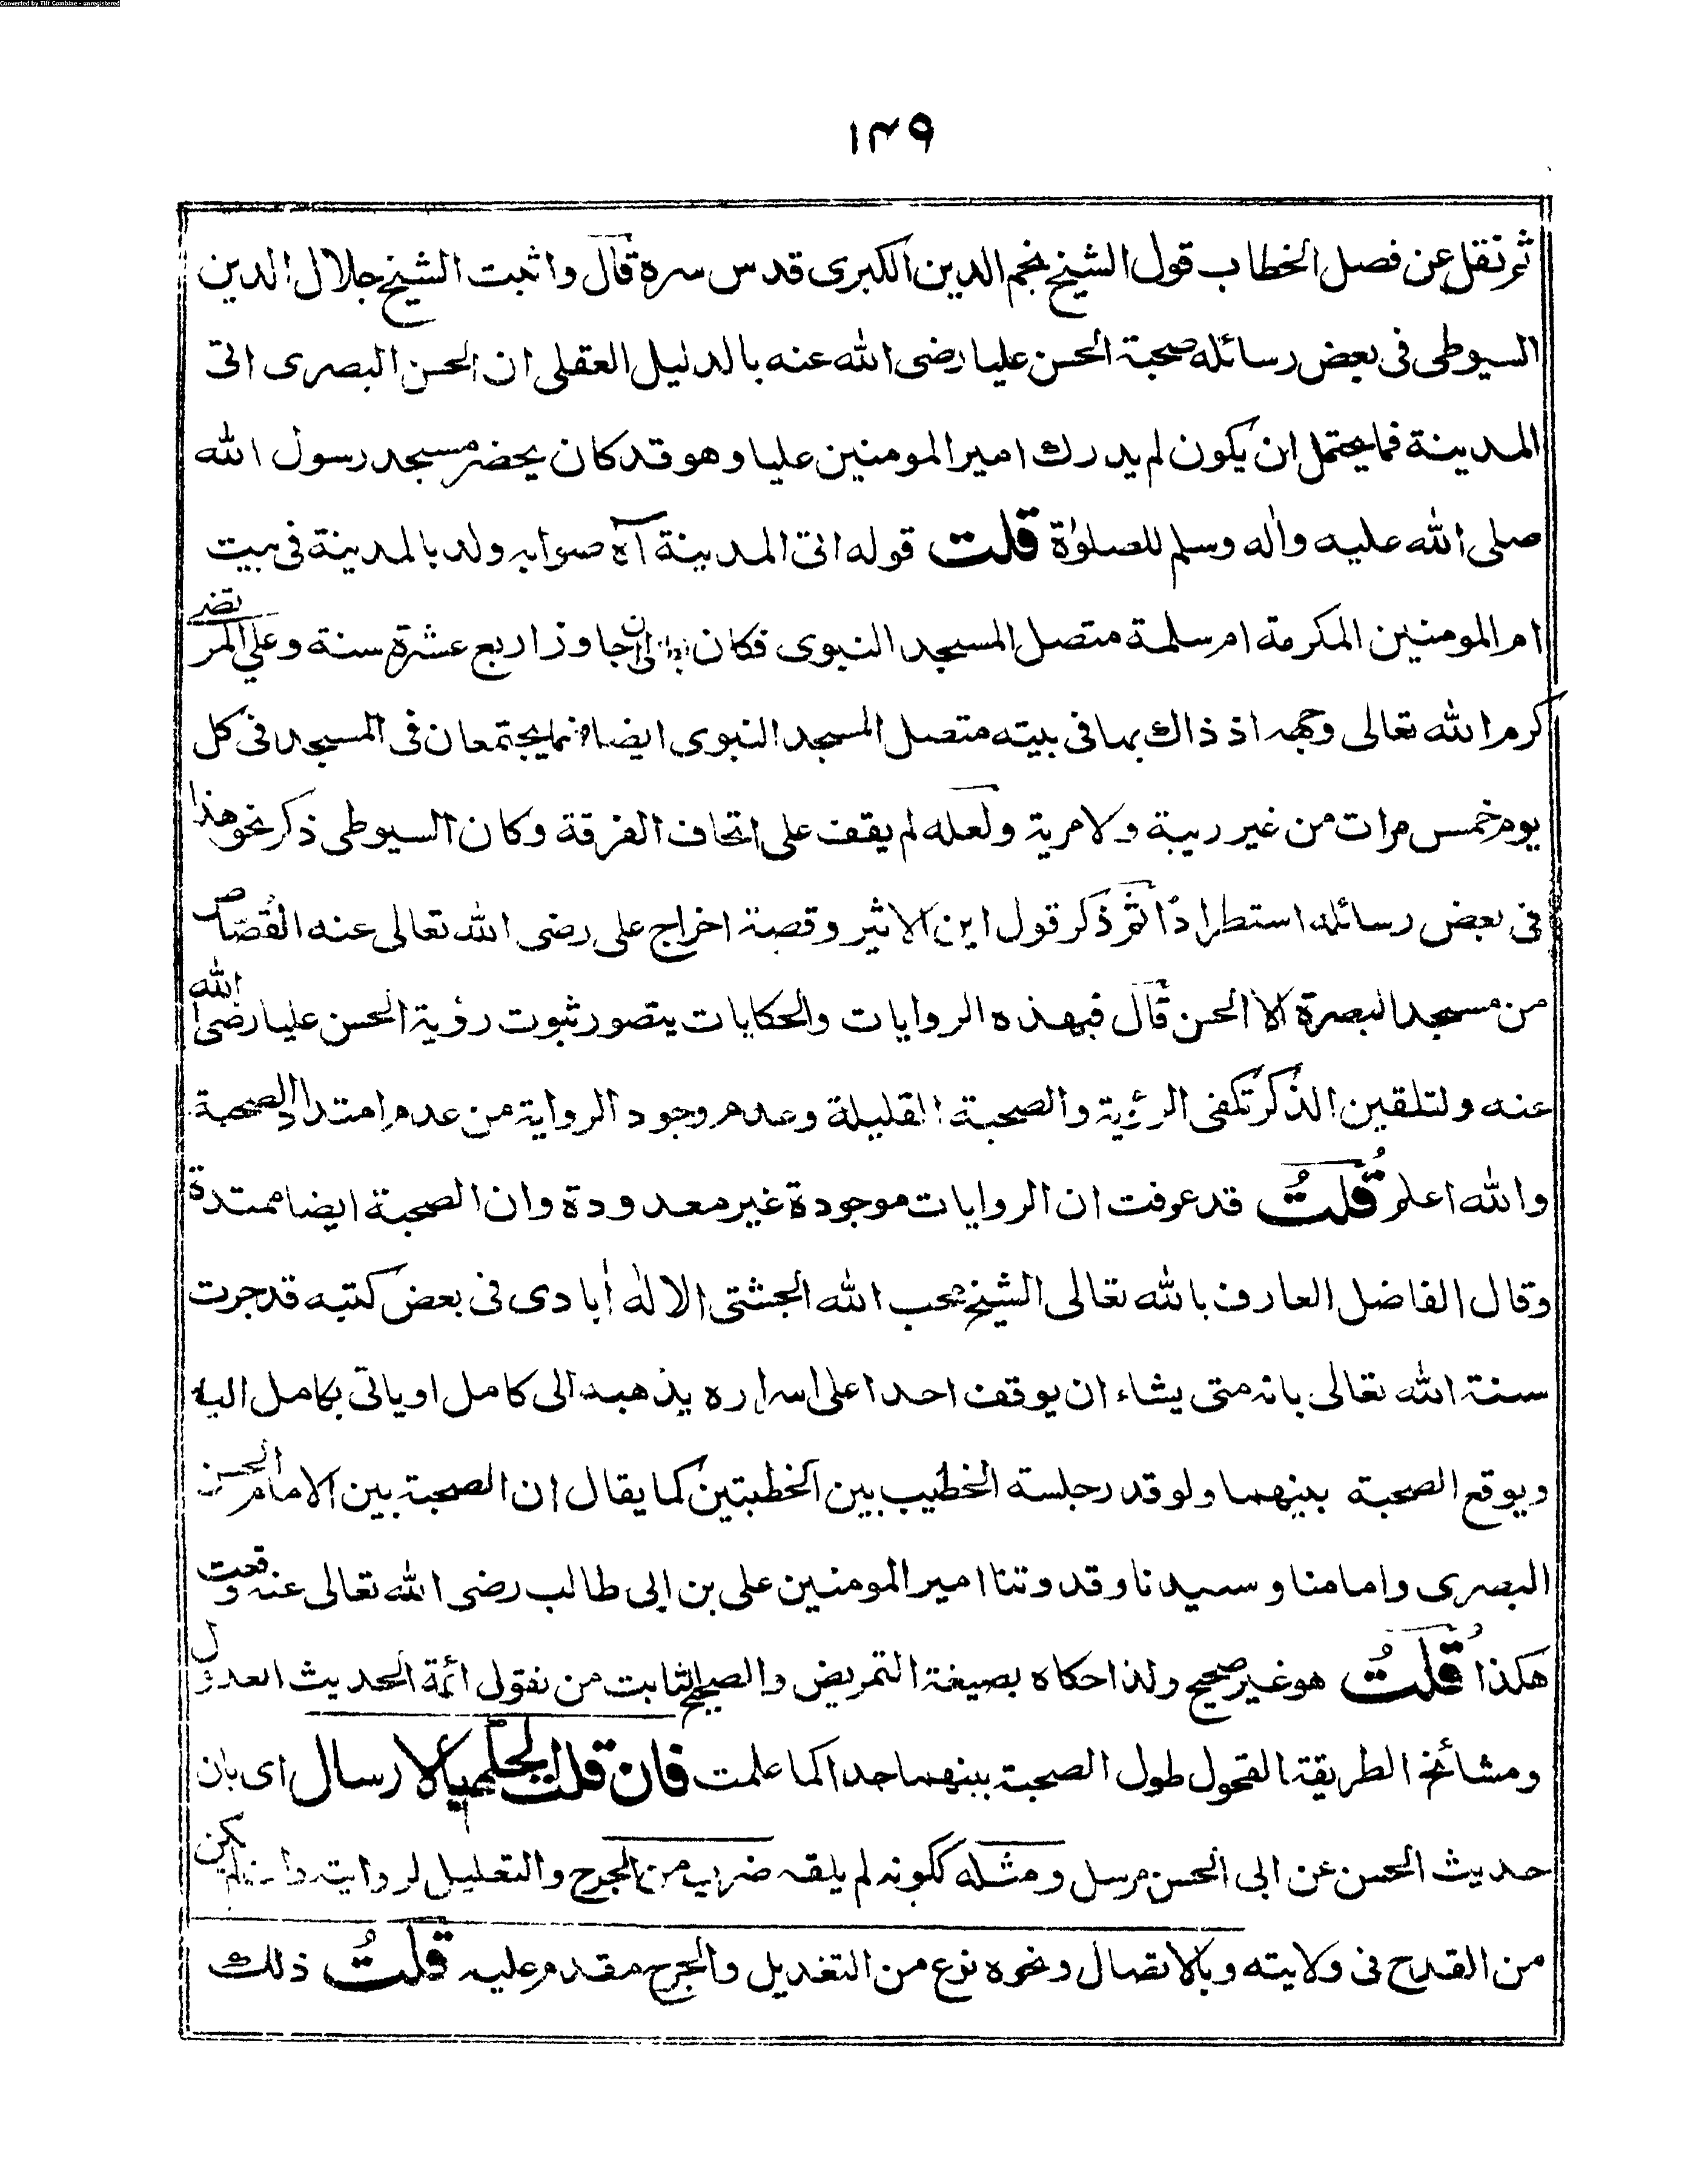 Converted by Tiff Combine - unregistered
١٤٩
ثم نقل عن فصل الخطاب قول الشيخ نجم الدين الكبرى قدس سره قال واثبت الشيخ جلال الدين
السيوطى فى بعض رسائله صحبة الحسن عليا رضى الله عنه بالدليل العقلى ان الحسن البصرى اتى
المدينة فما يحتمل ان يكون لم يدرك امير المومنين عليا وهو قد كان يحضر مسجد رسول الله
صلى الله عليه واٰله وسلم للصلوٰة قلت قوله اتى المدينة آه صوابه ولد بالمدينة فى بيت
ام المومنين المكرمة ام سلمة متصل المسجد النبوى فكان بها الى ان جاوز اربع عشرة سنة وعلي المرتضى
كرم الله تعالى وجهه اذ ذاك بها فى بيته متصل المسجد النبوى ايضا فهما يجتمعان فى المسجد فى كل
يوم خمس مرات من غير ريبة ولا مرية ولعله لم يقف على اتحاف الفرقة وكان السيوطى ذكر نحو هذا
فى بعض رسائله استطرادًا ثم ذكر قول ابن الاثير وقصة اخراج على رضى الله تعالى عنه القُصّاص
من مسجد البصرة الا الحسن قال فبهذه الروايات والحكايات يتصور ثبوت رؤية الحسن عليا رضى الله
عنه ولتلقين الذكر تكفى الرؤية والصحبة القليلة وعدم وجود الرواية من عدم امتداد الصحبة
والله اعلم قُلتُ قد عرفت ان الروايات موجودة غير معدودة وان الصحبة ايضا ممتدة
وقال الفاضل العارف بالله تعالى الشيخ محب الله الجشتى الالٰه اٰبادى فى بعض كتبه قد جرت
سنة الله تعالى بانه متى يشاء ان يوقف احدا على اسراره يذهبه الى كامل او ياتى بكامل اليه
ويوقع الصحبة بينهما ولو قدر جلسة الخطيب بين الخطبتين كما يقال ان الصحبة بين الامام الحسن
البصرى وامامنا وسيدنا وقدوتنا امير المومنين على بن ابى طالب رضى الله تعالى عنه وقعت
هكذا قُلتُ هو غير صحيح ولذا حكاه بصيغة التمريض والصحيح الثابت من نقول ائمة الحديث العدول
ومشائخ الطريقة الفحول طول الصحبة بينهما جدا كما علمت فان قلت الحكم بالارسال اى بان
حديث الحسن عن ابى الحسن مرسل ومثله ككونه لم يلقه ضرب من الجرح والتعليل لروايته وان لم يكن
من القدح فى ولايته وبالاتصال ونحوه نوع من التعديل والجرح مقدم عليه قلتُ ذلك